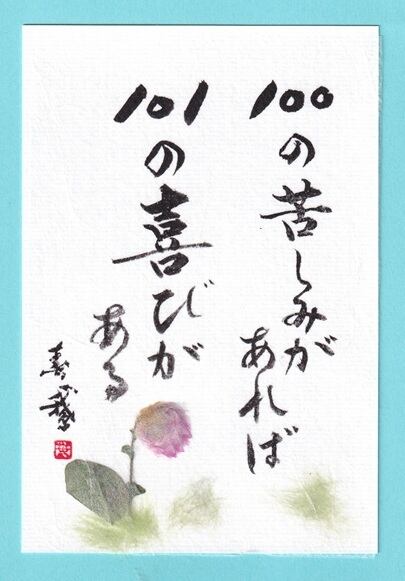 100の苦しみが
あれば
101の喜びが
ある